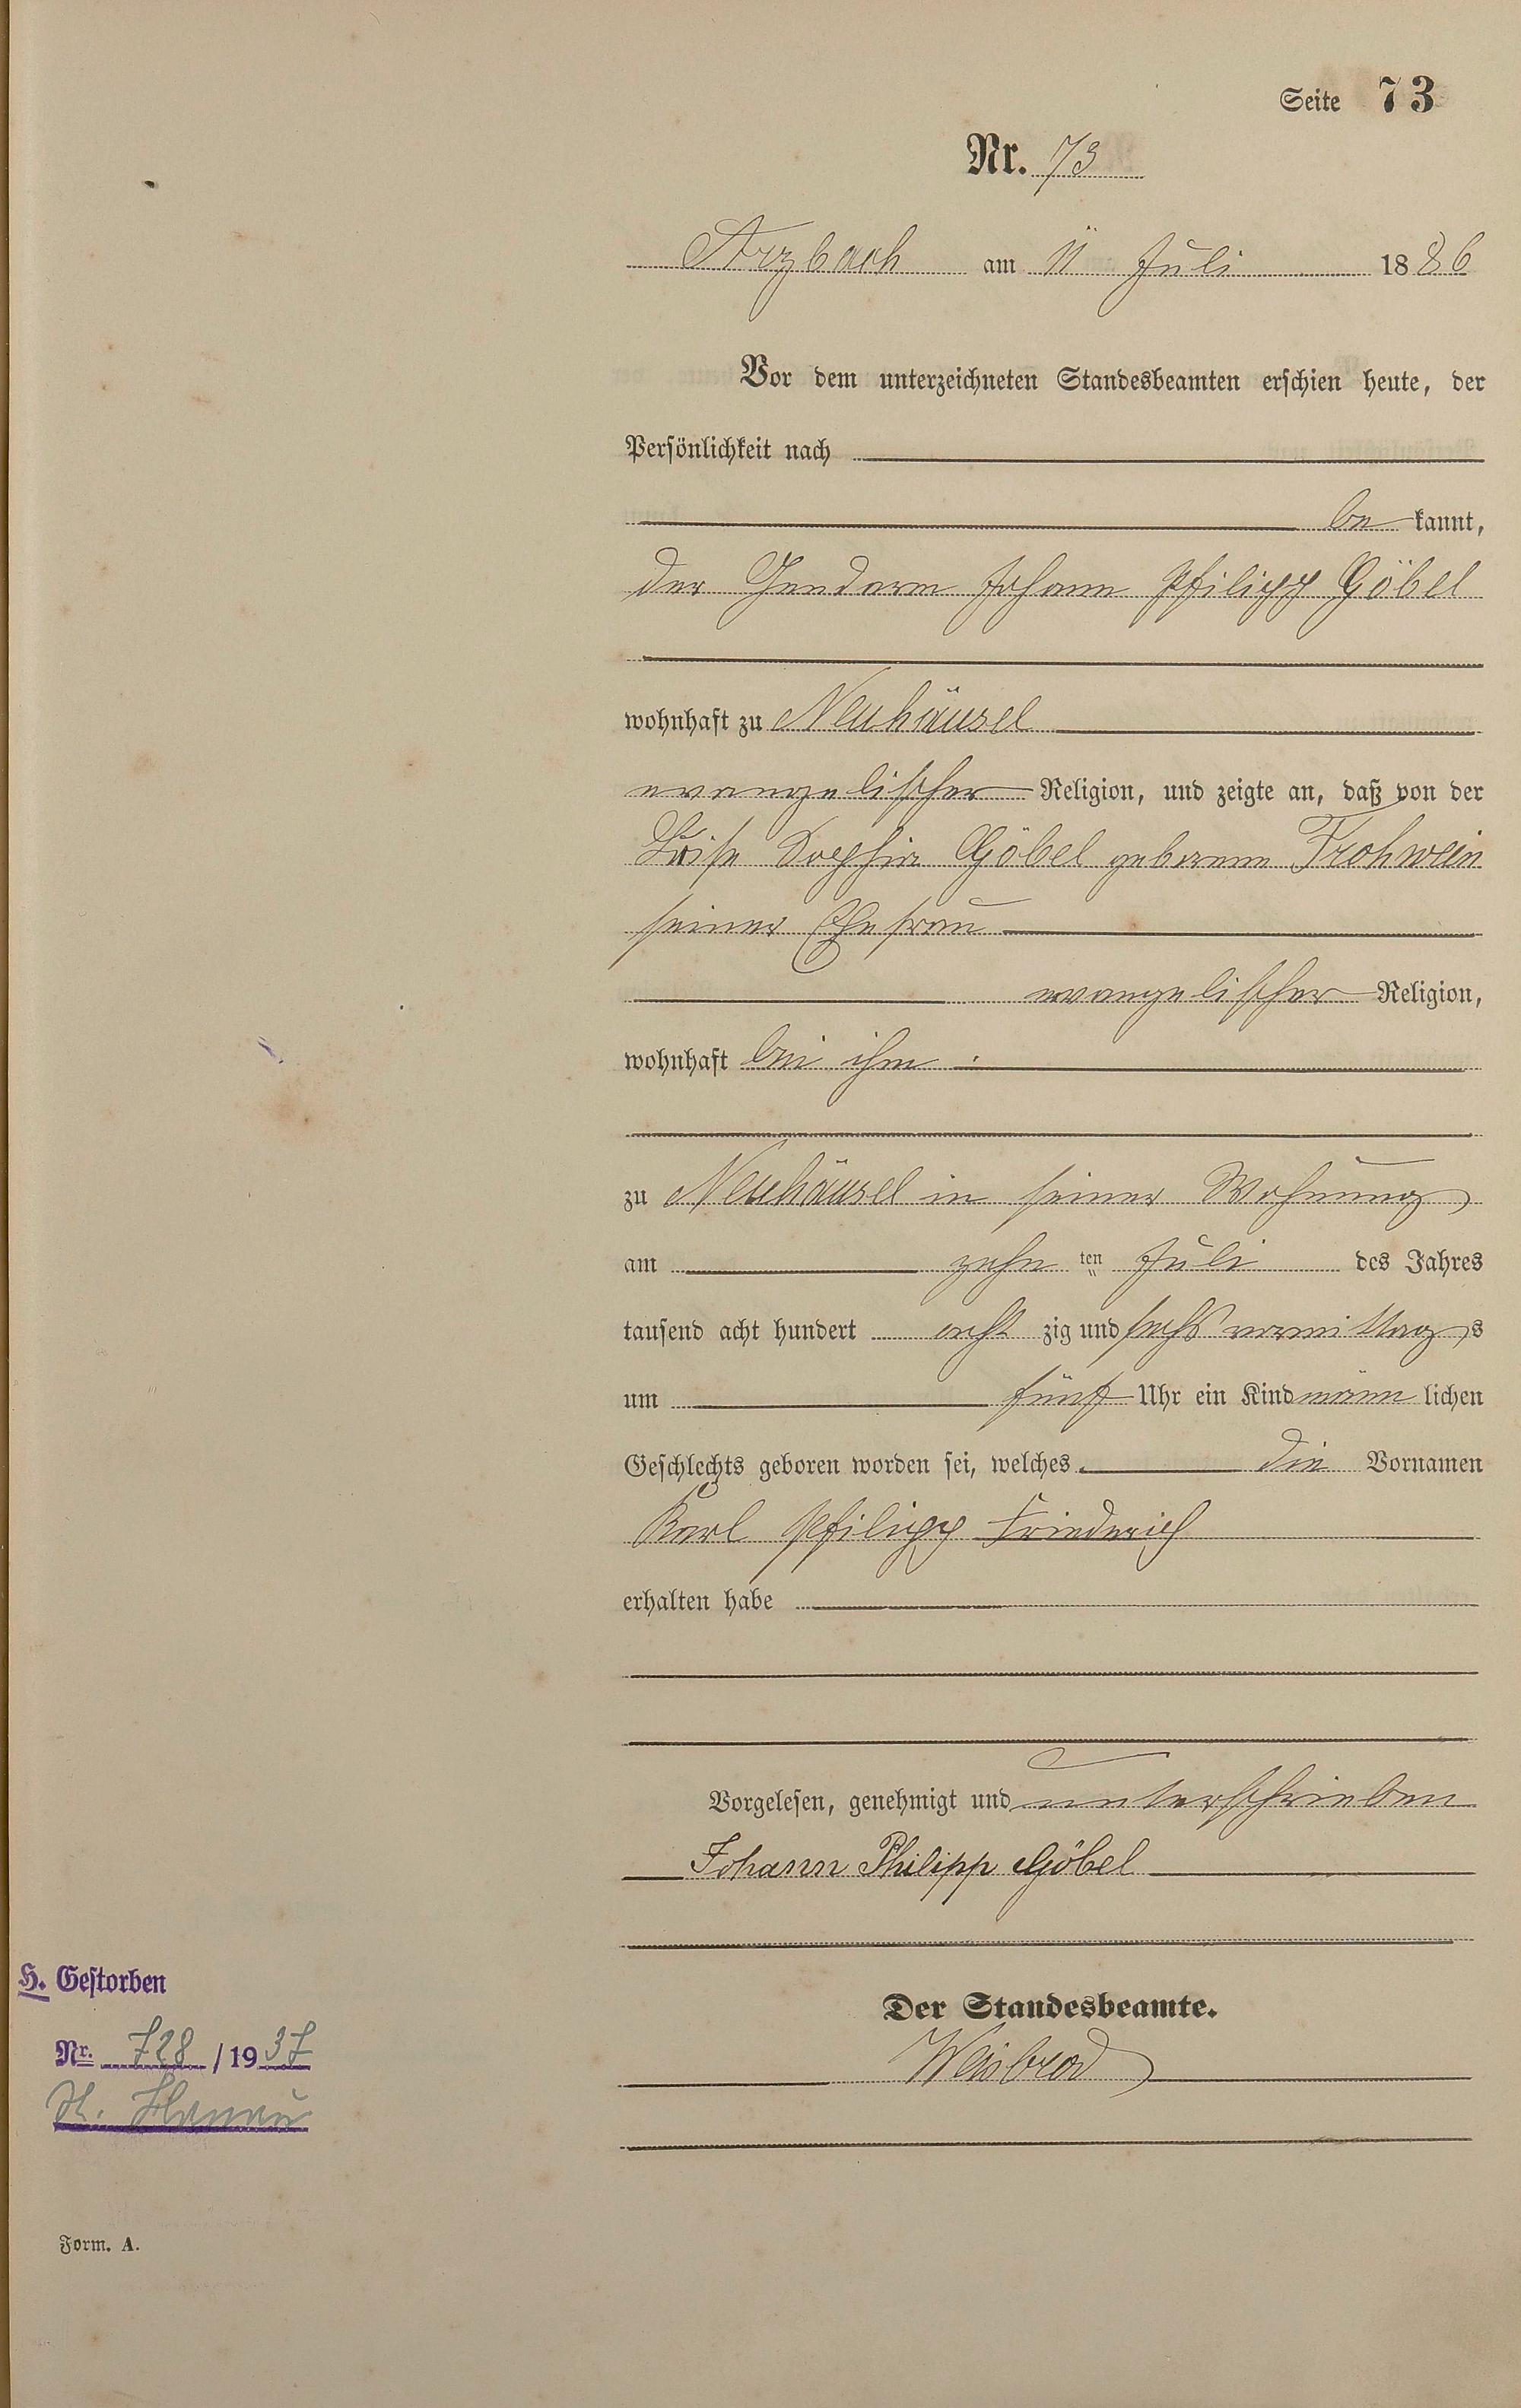 Seite 73
Nr. 73
Arzbach am 11 Juli 1886
Vor dem unterzeichneten Standesbeamten erschien heute, der
Persönlichkeit nach
bekannt,
der Gendarm Johann Philipp Göbel
wohnhaft zu Neuhäusel
evangelischer Religion, und zeigte an, daß von der
Luise Sophia Göbel geborene Frohwein
seiner Ehefrau
evangelischer Religion,
wohnhaft bei ihm
zu Neuhäusel in seiner Wohnung
am zehn ten Juli des Jahres
tausend acht hundert acht zig und sechs vormittags
um fünf Uhr ein Kind männlichen
Geschlechts geboren worden sei, welches die Vornamen
Karl Philipp Friederich
erhalten habe
Vorgelesen, genehmigt und unterschrieben
Johann Philipp Göbel
H. Gestorben
Der Standesbeamte.
Nr. 728/1937
Weisbrod
St. Hanau
Form. A.